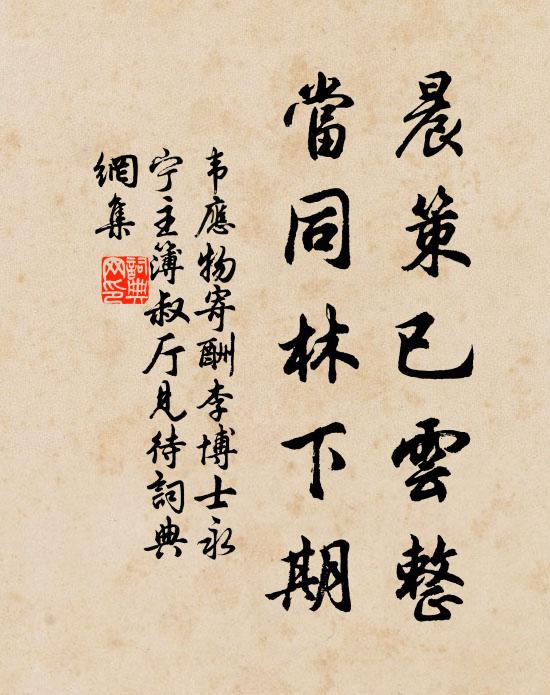 晨策已雲整
當同林下期
韦應物寄酬李博士永
宁主簿叔厅見待詞典
網集
詞典
网印